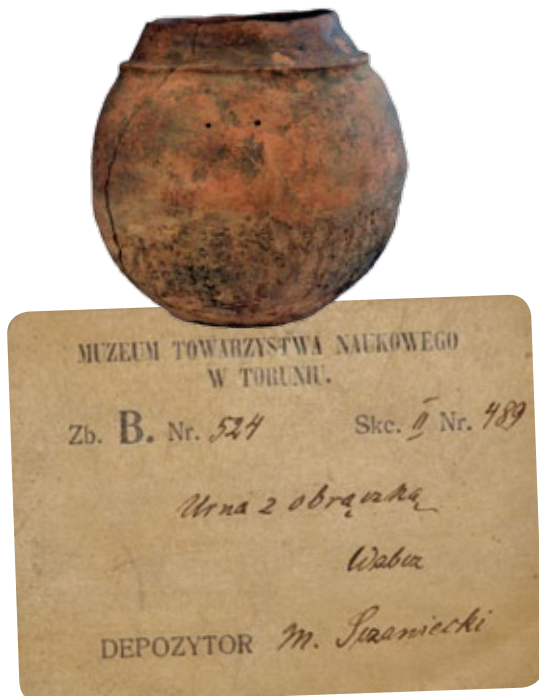 MUZEUM TOWARZYSTWA NAUKOWEGO
W TORUNIU.
Zb. B. Nr. 524 Skc. II Nr. 489
Urna z obrączką
Wabcz
DEPOZYTOR M. Sczaniecki